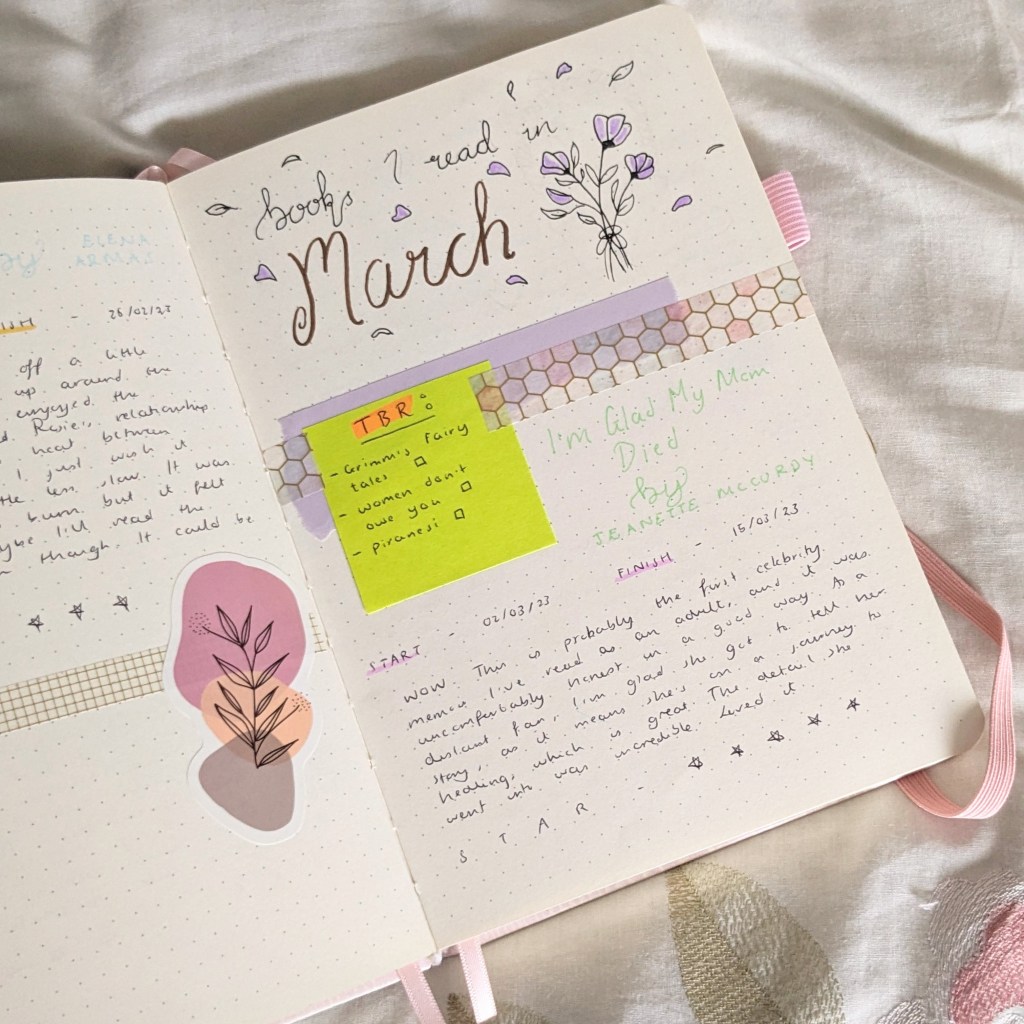 by ELENA
ARMAS
ISH - 26/02/23
off a little
up around the
enjoyed the
d. Rosie's relationship
heat between
I just wish it
tle less slow. It was
burn, but it felt
ybe I'll read the
though. It could be
books I read in
March
TBR:
- Grimm's Fairy
tales
- women don't
owe you
- piranesi
I'm Glad My Mom
Died
by
JEANETTE MCCURDY
START - 02/03/23
FINISH - 15/03/23
WOW. This is probably the first celebrity
memoir I've read as an adult, and it was
uncomfortably honest in a good way. As a
distant fan, I'm glad she got to tell her
story, as it means she's on a journey to
healing, which is great. The detail she
went into was incredible. Loved it.
STAR -